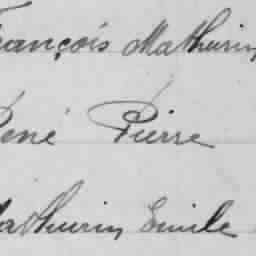 François Mathurin
René Pierre
Mathurin Emile